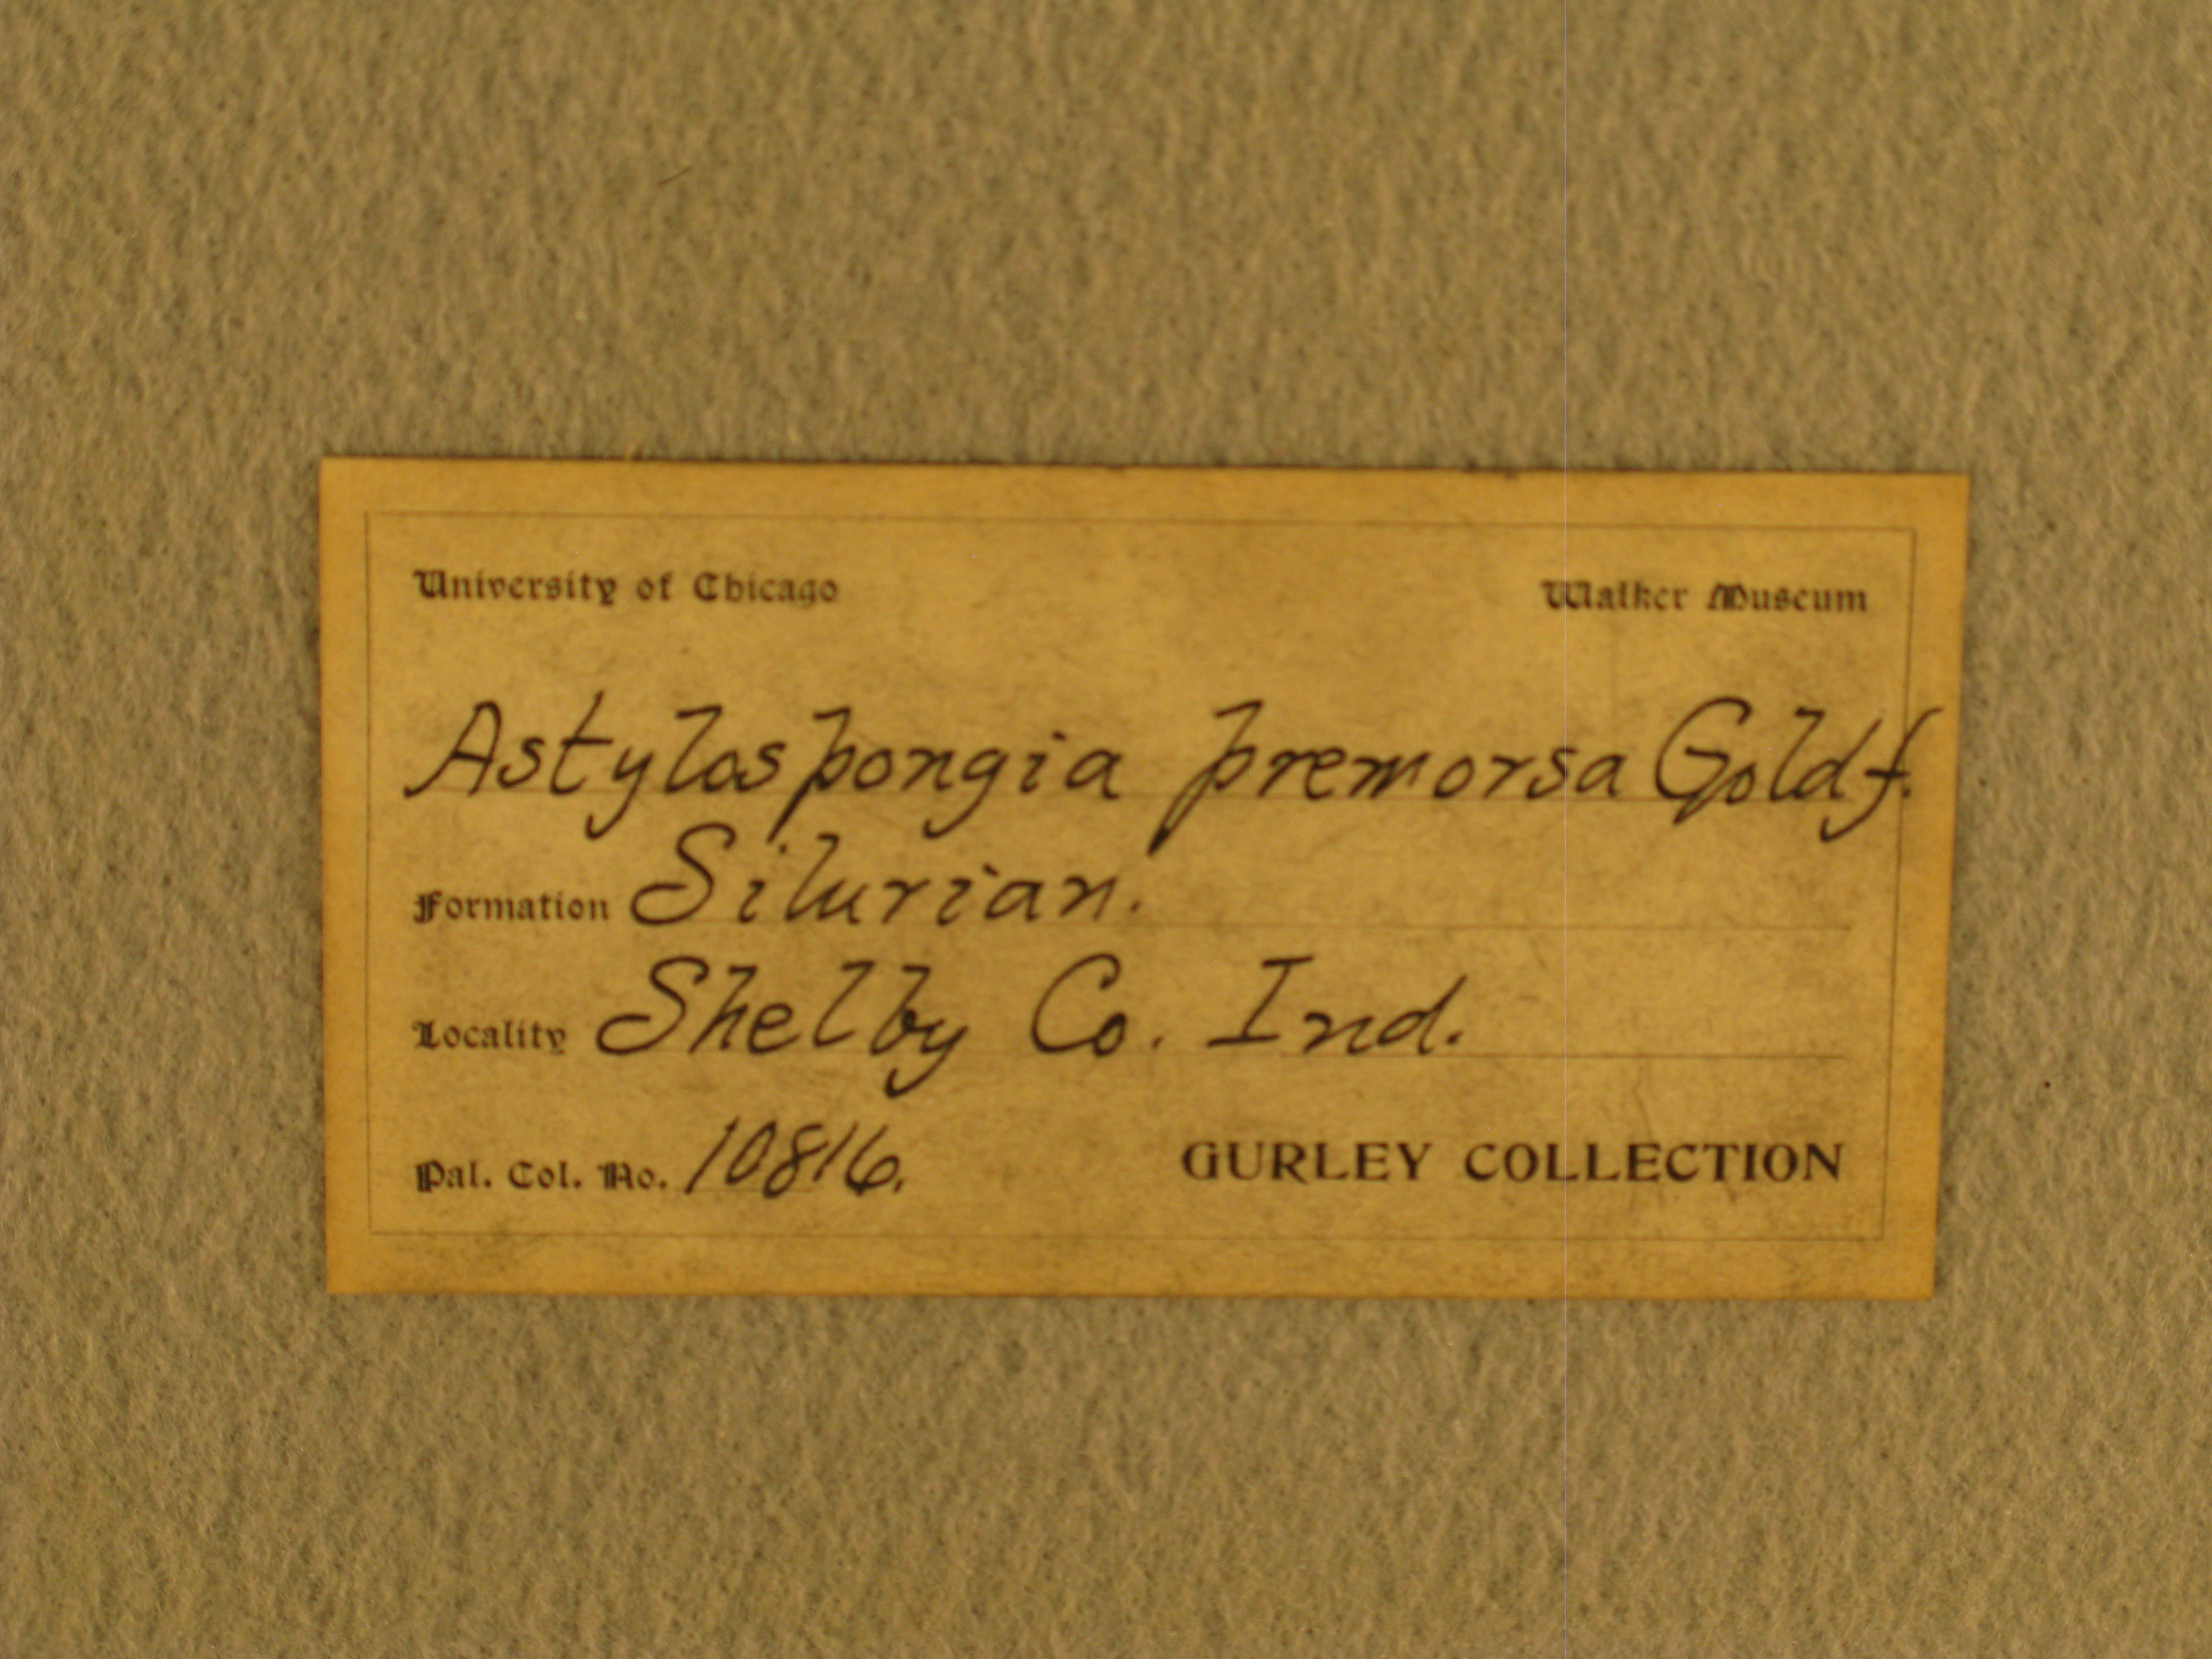 University of Chicago Walker Museum
Astylospongia premorsa Goldf.
Formation Silurian.
Locality Shelby Co. Ind.
Pal. Col. No. 10816. GURLEY COLLECTION